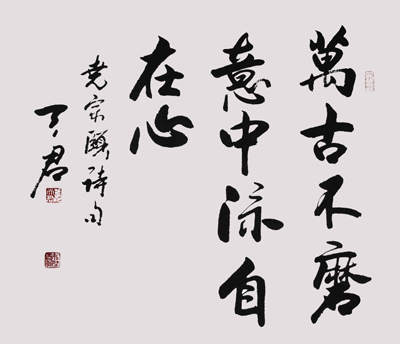 萬古不磨
意中流自
在心
堯宗頤詩句
君